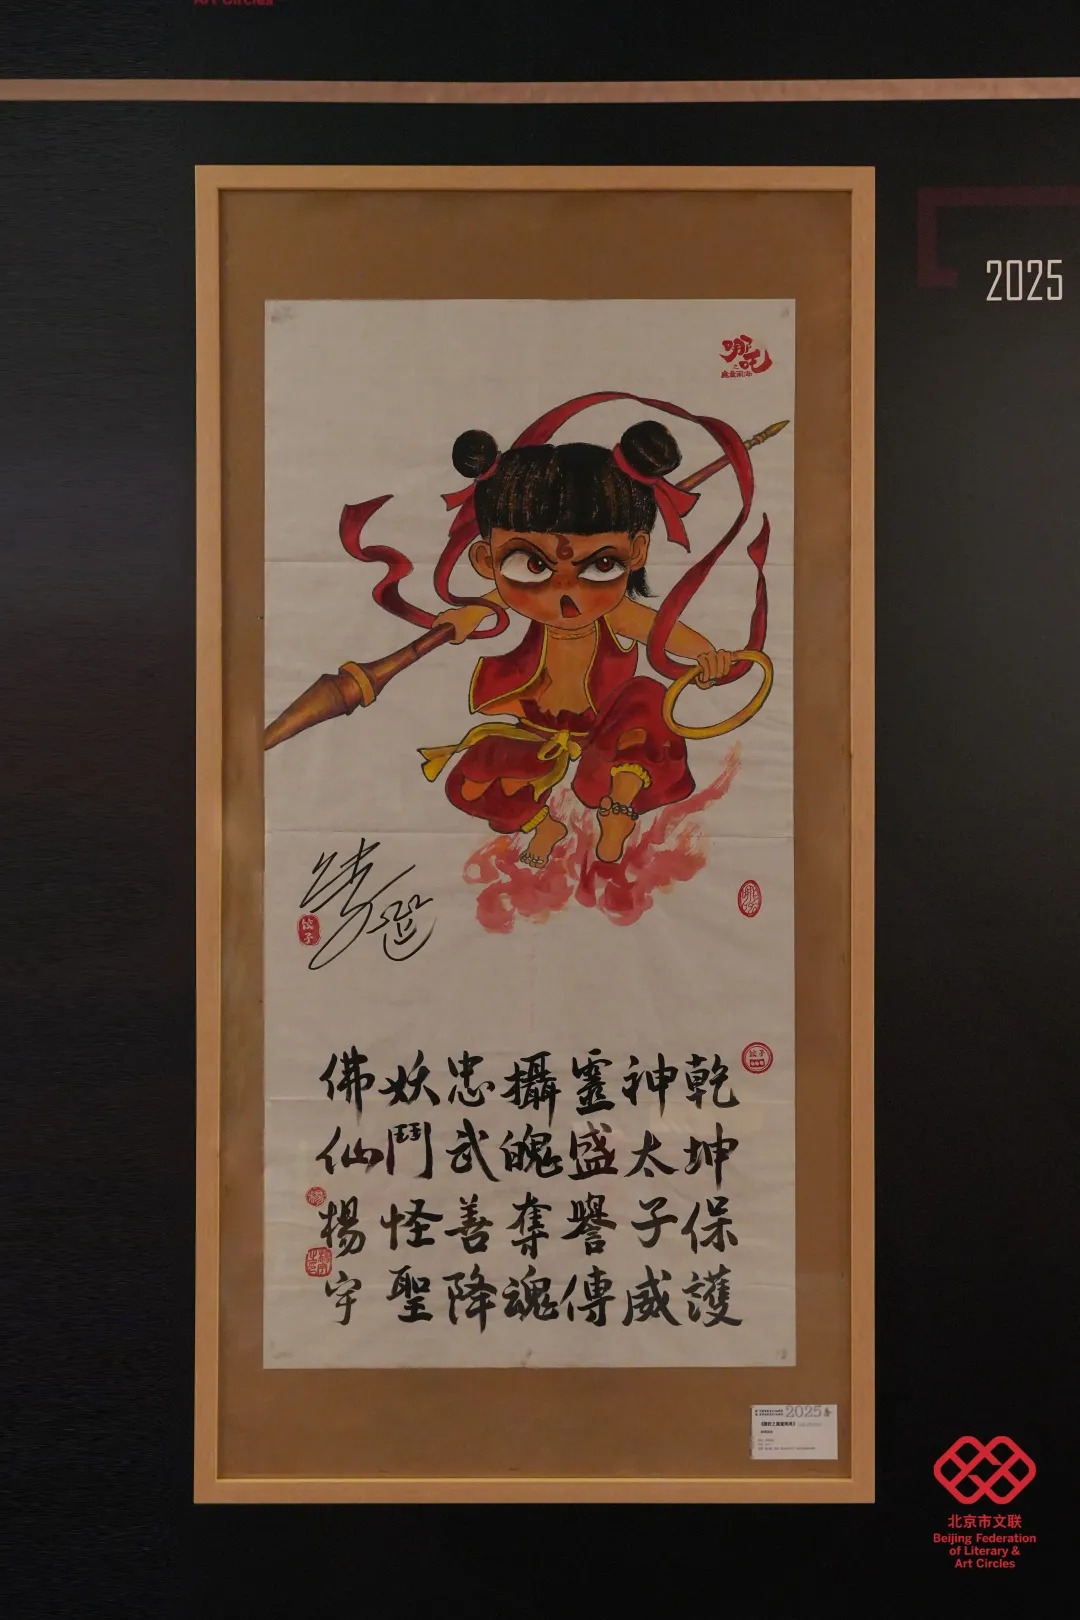 Art Circles
2025
哪吒
之
魔童闹海
饺子
乾坤保護
神太子威
靈盛譽傳
攝魄奪魂
忠武善降
妖鬥怪聖
佛仙楊宇
2025
北京市文联
Beijing Federation
of Literary &
Art Circles